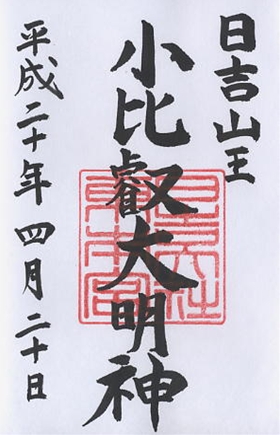 日吉山王
小比叡大明神
平成二十年 四月 二十日